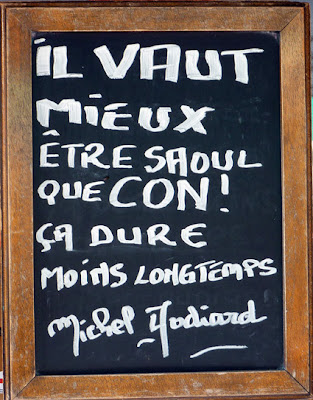 iL VAUT
MiEUX
ÊTRE SAOUL
QUE CON !
ÇA DURE
MOiNS LONGTEMPS
Michel Audiard